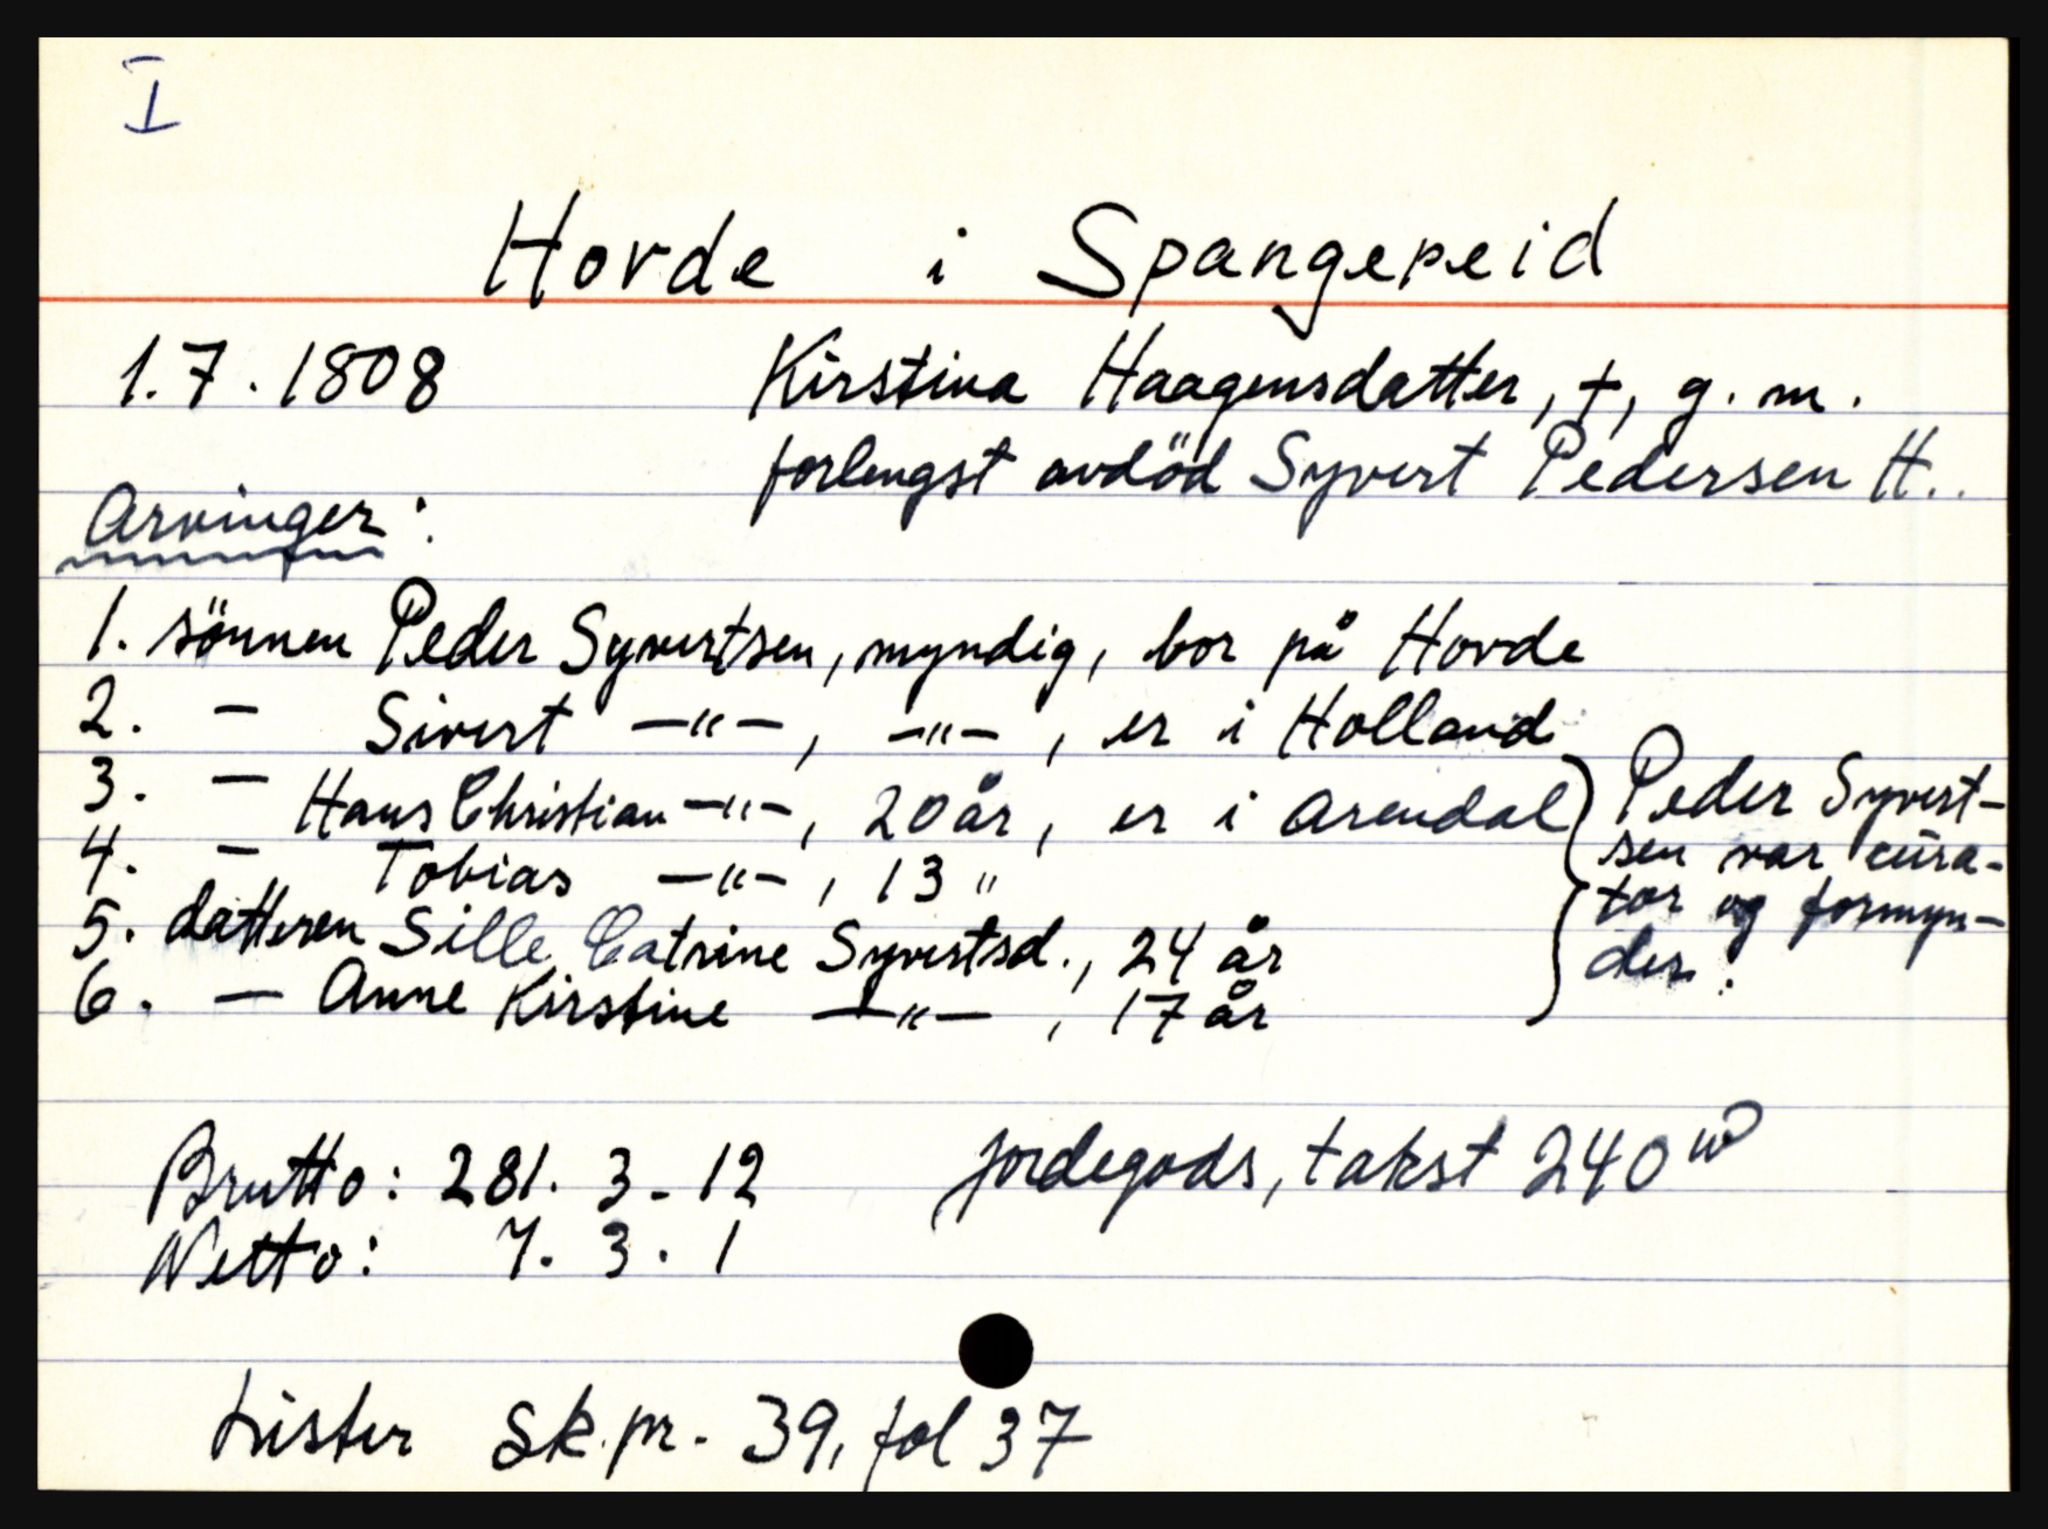 I
Hovde i Spangereid
1.7.1808 Kirstina Haagensdatter, †, g. m.
forlengst avdöd Syvert Pedersen H..
Arvinger:
1. sönnen Peder Syvertsen, myndig, bor på Hovde
2. — Sivert —"—, —"—, er i Holland
3. — Hans Christian —"—, 20 år, er i Arendal
4. — Tobias —"—, 13 "
5. datteren Sille Catrine Syvertsd., 24 år
6. — Anne Kirstine —"—, 17 år
Peder Syvert-
sen var cura-
tor og formyn-
der.
Brutto: 281. 3 - 12 jordegods, takst 240
Netto: 7. 3. 1
Lister Sk.pr. 39, fol 37